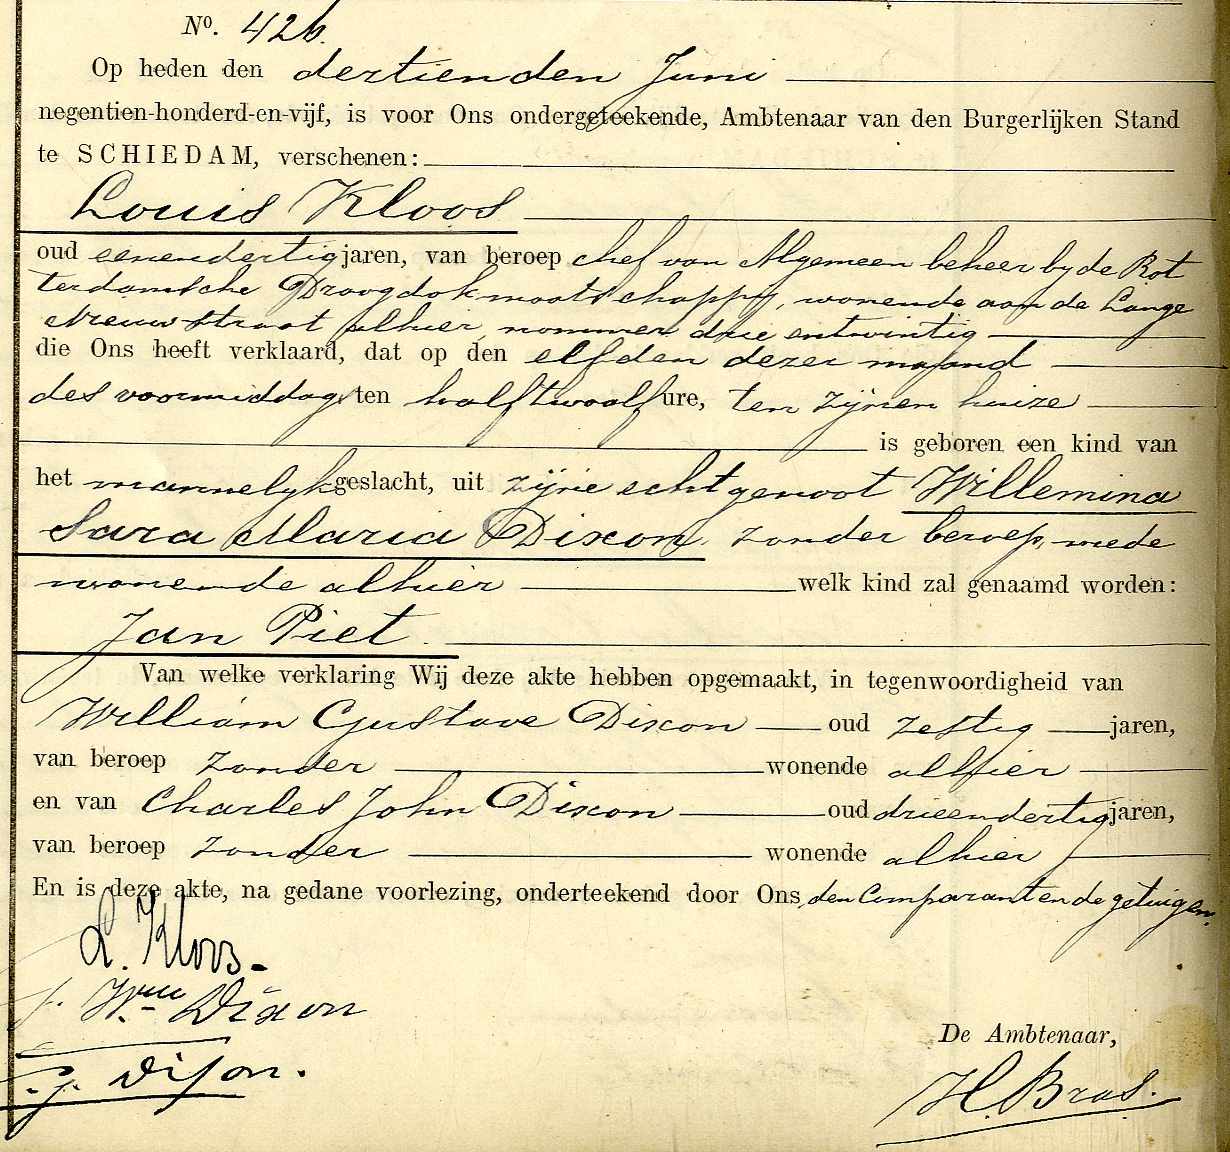 No. 426.
Op heden den dertienden Juni
negentien-honderd-en-vijf, is voor Ons ondergeteekende, Ambtenaar van den Burgerlijken Stand
te SCHIEDAM, verschenen:
Louis Kloos
oud eenendertig jaren, van beroep chef van Algemeen beheer by de Rot
terdamsche Droogdokmaatschappy, wonende aan de Lange
Nieuwstraat alhier, nommer drie entwintig
die Ons heeft verklaard, dat op den elfden dezer maand
des voormiddags ten halftwaalf ure, ten zijnen huize
is geboren een kind van
het mannelyk geslacht, uit zijne echtgenoot Willemina
Sara Maria Dixon, zonder beroep, mede
wonende alhier welk kind zal genaamd worden:
Jan Piet.
Van welke verklaring Wij deze akte hebben opgemaakt, in tegenwoordigheid van
William Gustave Dixon oud zestig jaren,
van beroep zonder wonende alhier
en van Charles John Dixon oud drieendertig jaren,
van beroep zonder wonende alhier
En is deze akte, na gedane voorlezing, onderteekend door Ons, den Comparant en de getuigen.
L. Kloos.
Wm Dixon
Dixon.
De Ambtenaar,
H. Bras.